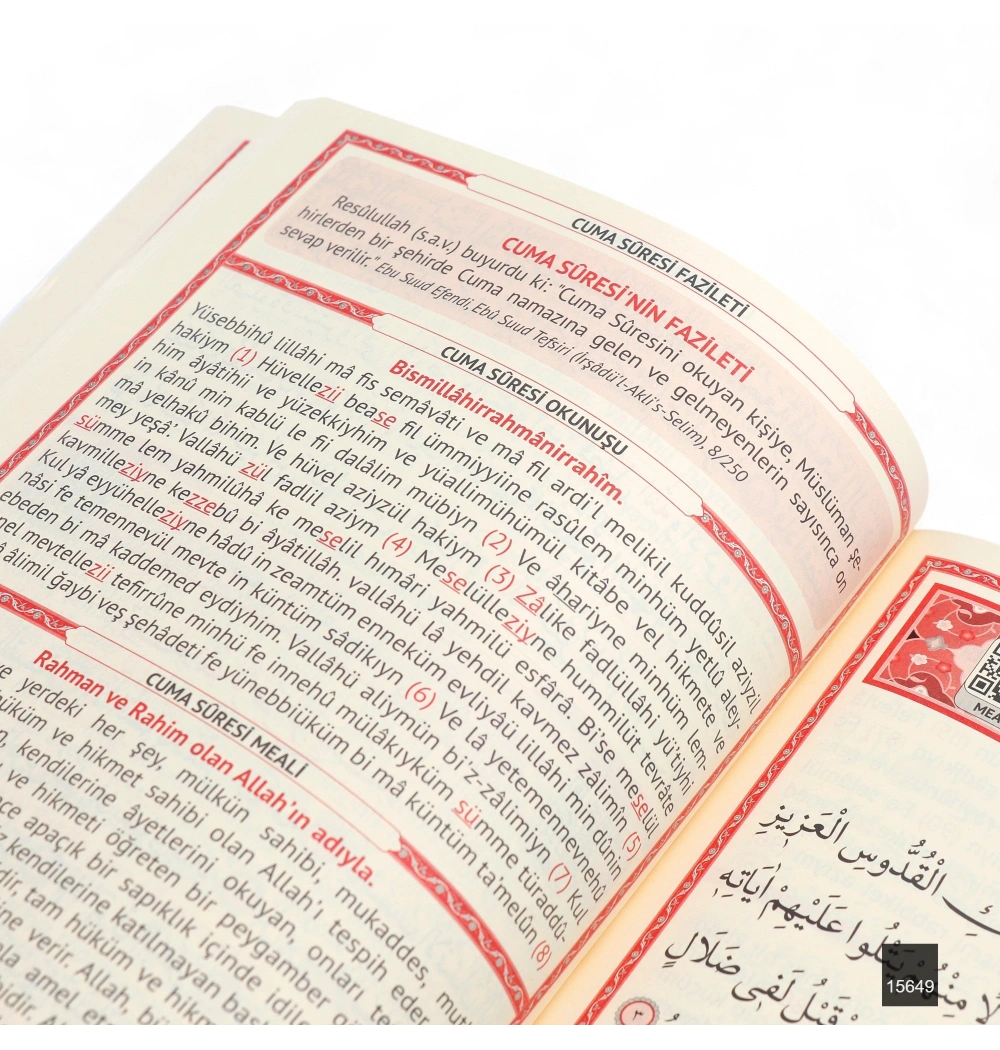 CUMA SÛRESİ FAZİLETİ
CUMA SÛRESİ'NİN FAZİLETİ
Resûlullah (s.a.v.) buyurdu ki: "Cuma Sûresini okuyan kişiye, Müslüman şe-
hirlerden bir şehirde Cuma namazına gelen ve gelmeyenlerin sayısınca on
sevap verilir." Ebu Suud Efendi, Ebû Suud Tefsiri (İrşâdü'l-Akli's-Selim), 8/250
CUMA SÛRESİ OKUNUŞU
Bismillâhirrahmânirrahîm.
Yüsebbihû lillâhi mâ fis semâvâti ve mâ fil ardi'l melikil kuddûsil aziyzil
hakiym (1) Hüvellezii bease fil ümmiyyiine rasûlem minhüm yetlû aley-
him âyâtihii ve yüzekkiyhim ve yüallimühümül kitâbe vel hikmete ve
in kânû min kablü le fii dalâlim mübiyn (2) Ve âhariyne minhüm lem-
mâ yelhakû bihim. Ve hüvel aziyzül hakiym (3) Zâlike fadlüllâhi yü'tiyhi
mey yeşâ' Vallâhü zül fadlil aziym (4) Meselüllezi­yne hummilüt tevrâte
sümme lem yahmilûhâ ke meselil hımâri yahmilü esfârâ. Bi'se meselül
kavmilleziyne kezzebû bi âyâtillâh. vallâhü lâ yehdil kavmez zâlimîn (5)
Kul yâ eyyühelleziyne hâdû in zeamtüm enneküm evliyâü lillâhi min dûnin
nâsi fe temennevül mevte in küntüm sâdikıyn (6) Ve lâ yetemennevnehû
ebeden bi mâ kaddemed eydiyhim. Vallâhü aliymün bi'z-zâlimiyn (7) Kul
nel mevtellezii tefirrûne minhü fe innehû mülâkıyküm sümme türaddû-
âlimil gaybi veş şehâdeti fe yünebbiüküm bi mâ küntüm ta'melûn (8)
CUMA SÛRESİ MEALİ
Rahman ve Rahim olan Allah'ın adıyla.
ve yerdeki her şey, mülkün sahibi, mukaddes,
hüküm ve hikmet sahibi olan Allah'ı tespih eder
kendilerine âyetlerini okuyan, onları
ve hikmeti öğreten bir peygamber
apaçık bir sapıklık içinde idiler
kendilerine katılmayan
tam hüküm ve
verir. Allah,
amel
الْقُدُّوسِ الْعَزِيزِ
يَتْلُوا عَلَيْهِمْ اٰيَاتِه۪
قَبْلُ لَف۪ي ضَلَالٍ
٢
15649